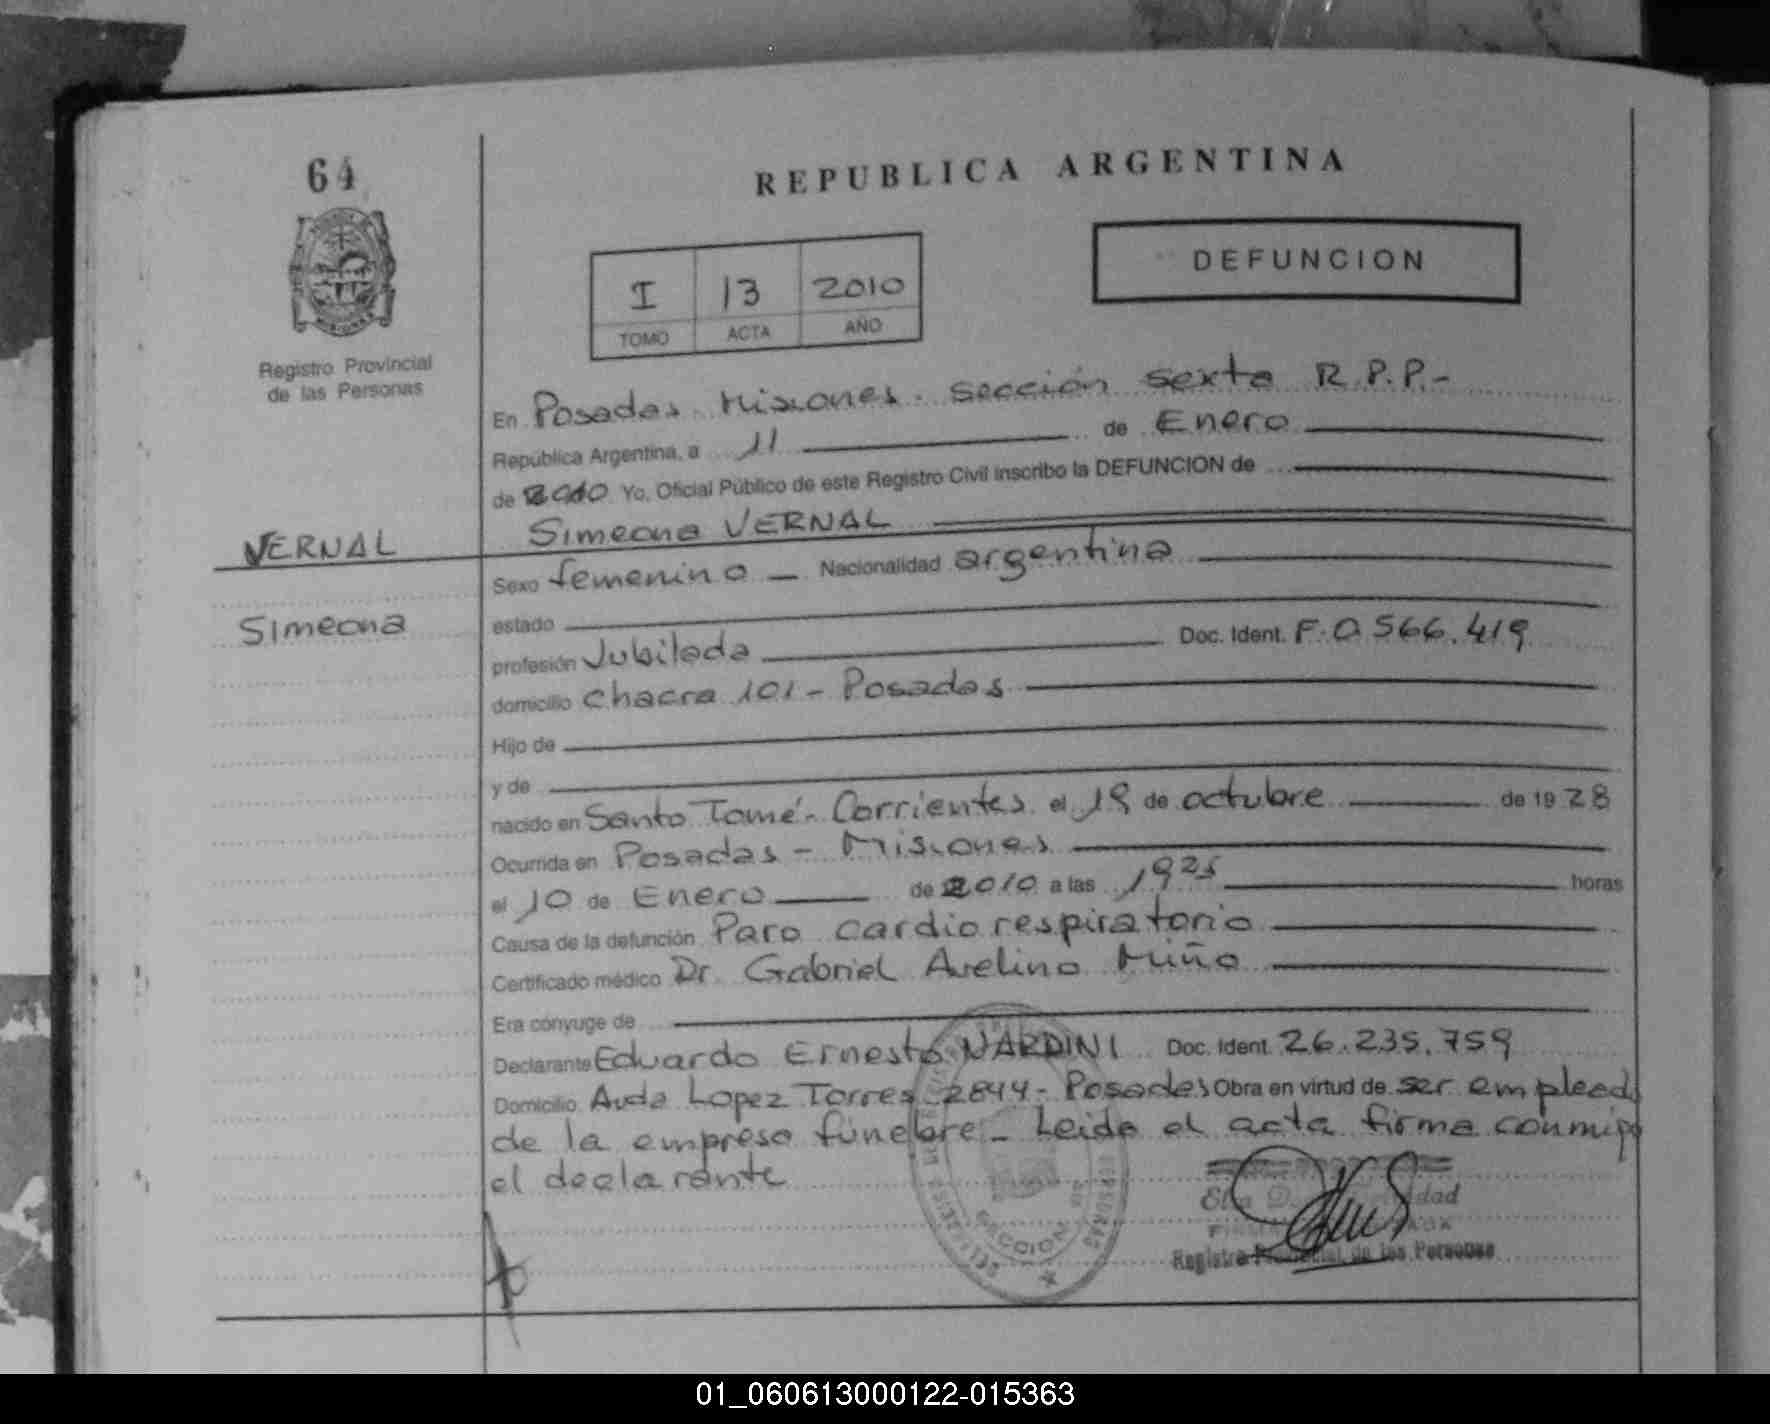 64
REPUBLICA ARGENTINA
DEFUNCION
I 13 2010
TOMO ACTA AÑO
Registro Provincial
de las Personas
En Posadas Misiones. sección sexta R.P.P.-
República Argentina, a 11 de Enero
de 2010 Yo, Oficial Público de este Registro Civil inscribo la DEFUNCION de
VERNAL Simeona VERNAL
Sexo femenino Nacionalidad argentina
Simeona
estado
profesión Jubilada Doc. Ident. F. 0.566.419
domicilio chacra 101 - Posadas
Hijo de
y de
nacido en Santo Tomé - Corrientes el 19 de octubre de 1928
Ocurrida en Posadas - Misiones
el 10 de Enero de 2010 a las 19 25 horas
Causa de la defunción Paro cardio respiratorio
Certificado médico Dr. Gabriel Avelino Miño
Era cónyuge de
Declarante Eduardo Ernesto NARDINI Doc. Ident. 26.235.759
Domicilio Avda Lopez Torres 2844 - Posadas Obra en virtud de ser empleado
de la empresa fúnebre - Leida el acta firma conmigo
el declarante
SECCION
Registro Provincial de las Personas
01_060613000122-015363